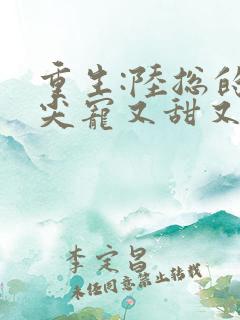 重生:陸总的
尖寵又甜又
李定昌
未经同意禁止转载